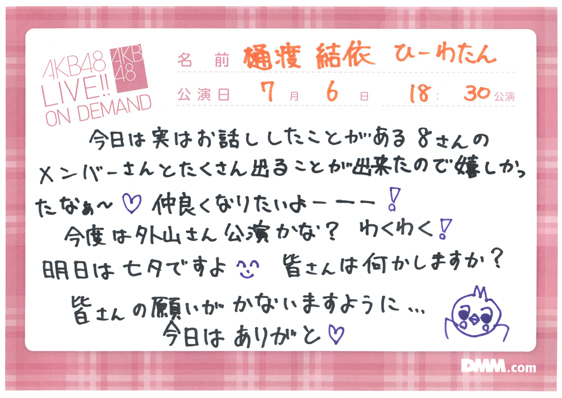 AKB48
LIVE!!
ON DEMAND
AKB
48
名前 樋渡 結依 ひーわたん
公演日 7月 6日 18:30公演
今日は実はお話ししたことがある8さんの
メンバーさんとたくさん出ることが出来たので嬉しかっ
たなぁ〜♡ 仲良くなりたいよーーー!
今度は外山さん公演かな? わくわく!
明日は七夕ですよ 皆さんは何かしますか?
皆さんの願いがかないますように...
今日はありがと♡
DMM.com